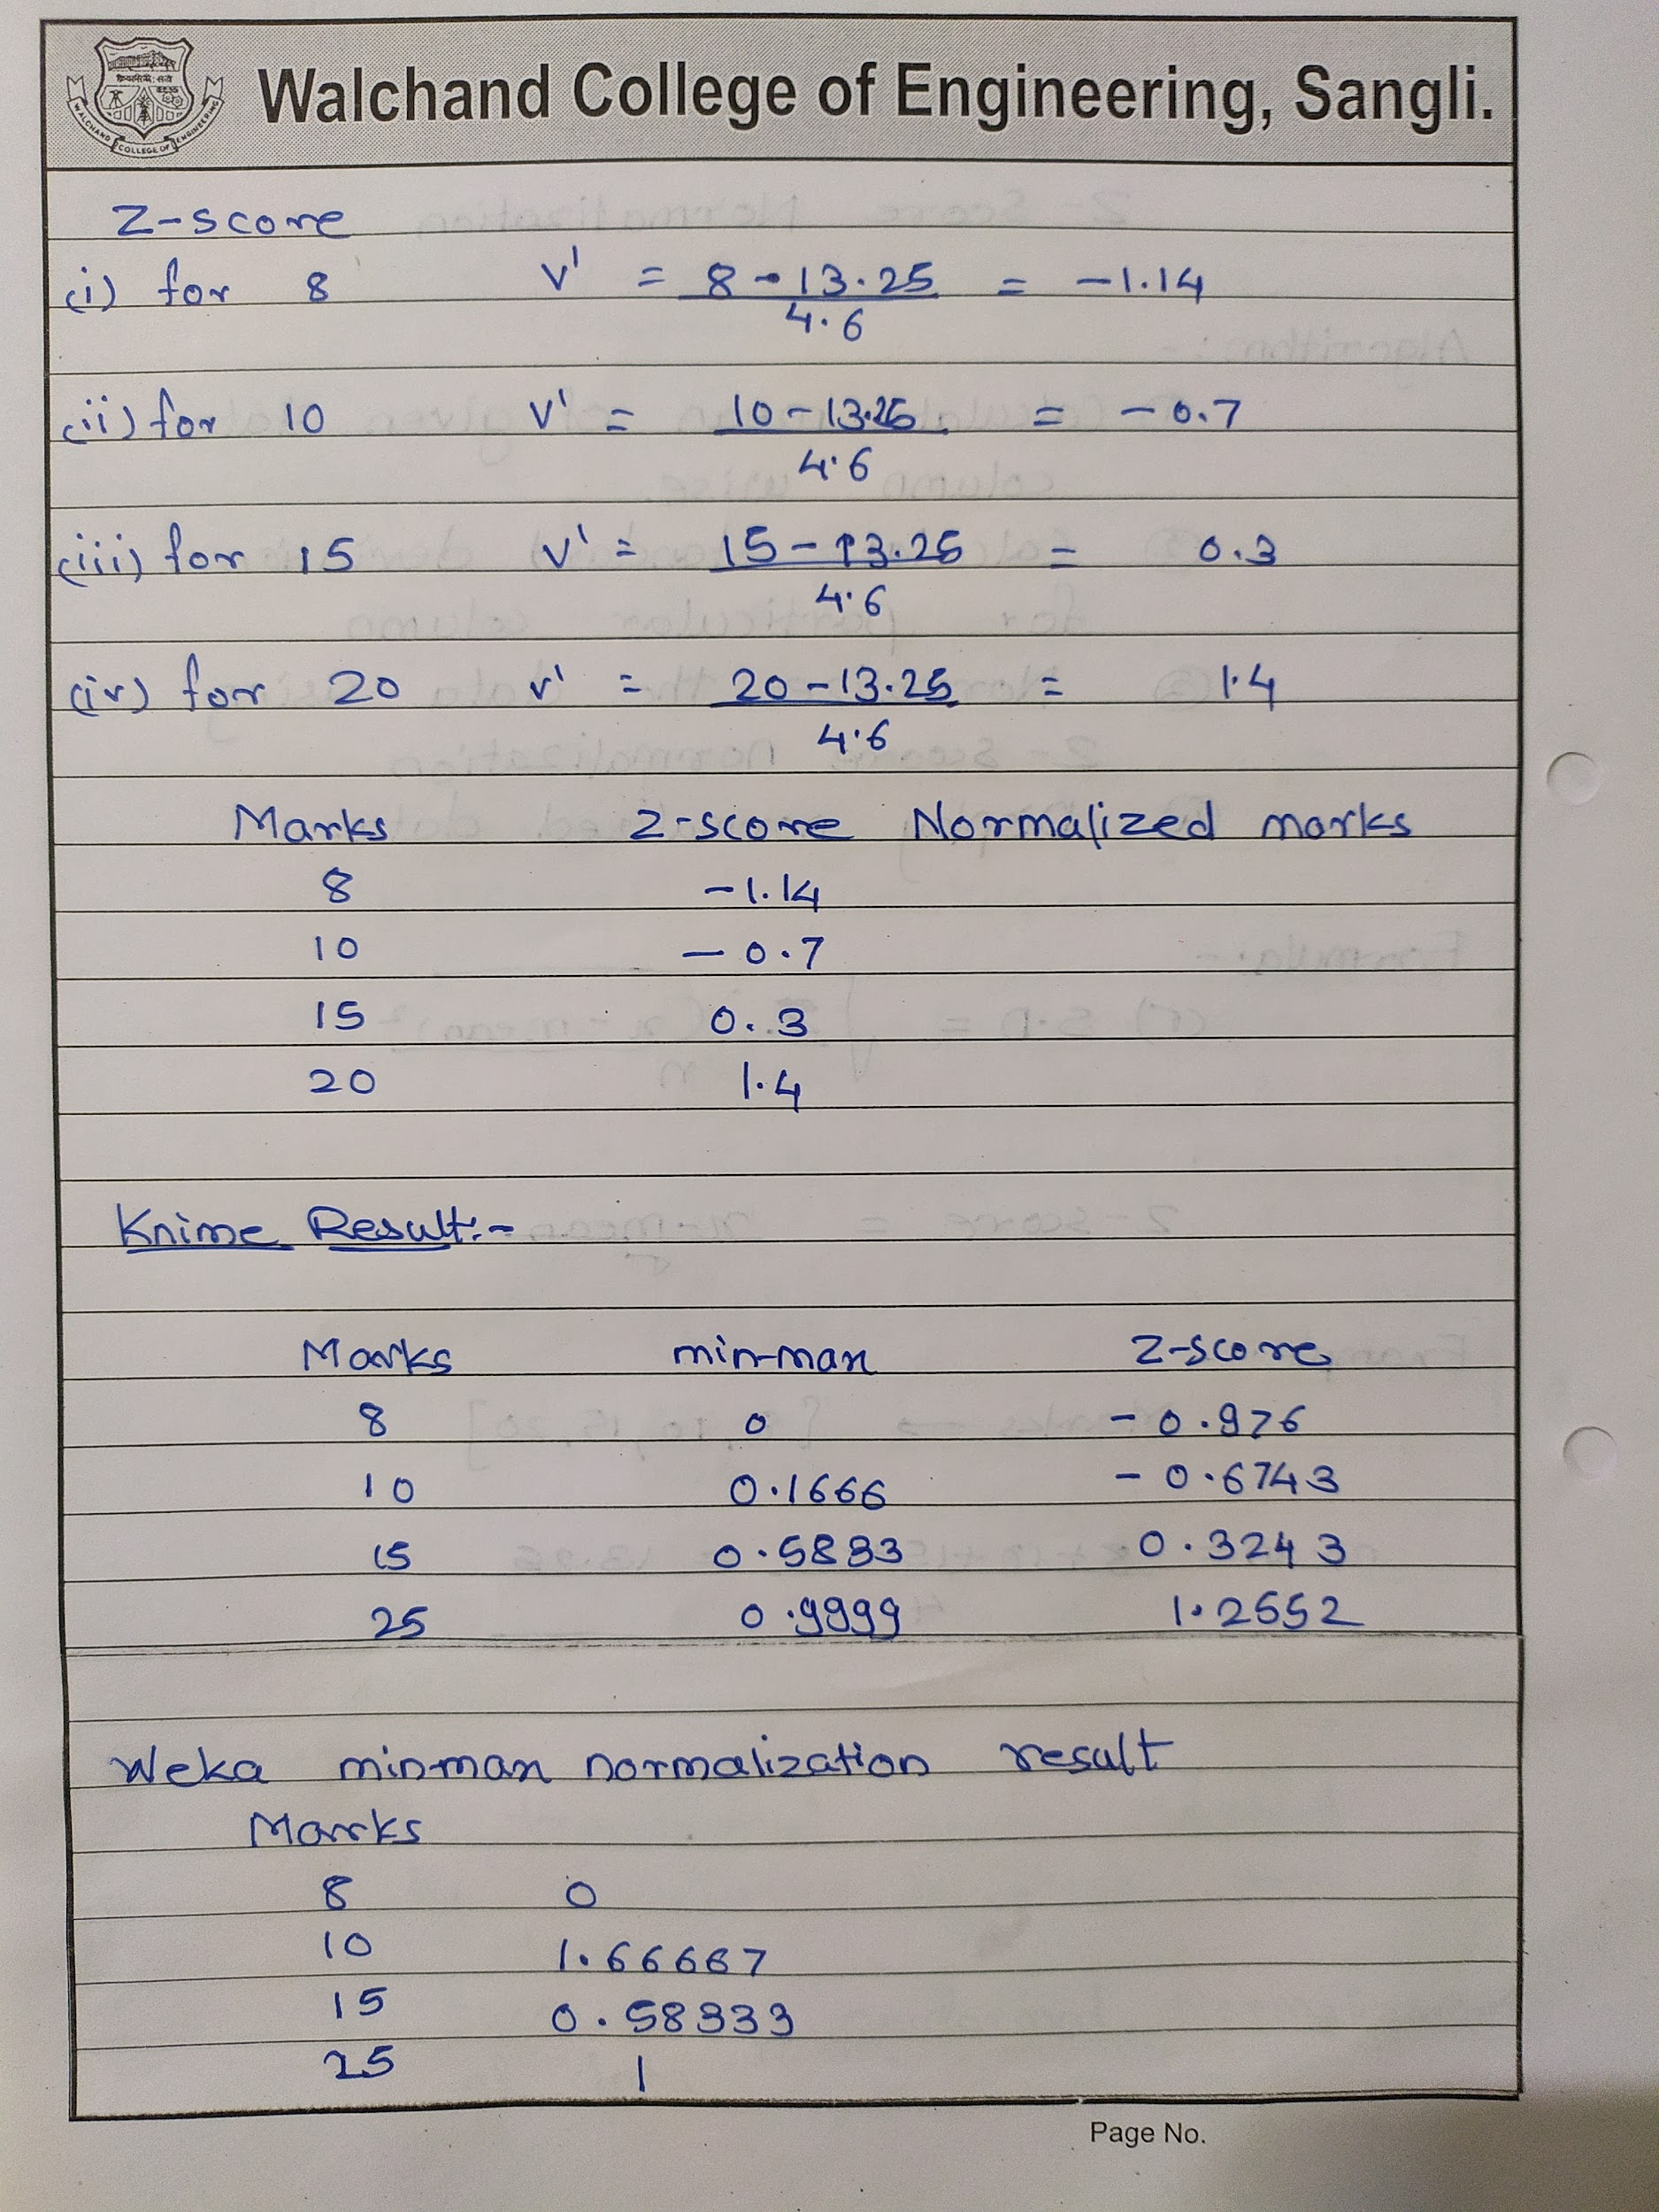 Walchand College of Engineering, Sangli.
WALCHAND COLLEGE OF ENGINEERING
Z-score
(i) for 8 v' = 8 - 13.25 = -1.14
4.6
(ii) for 10 v' = 10 - 13.25 = -0.7
4.6
(iii) for 15 v' = 15 - 13.25 = 0.3
4.6
(iv) for 20 v' = 20 - 13.25 = 1.4
4.6
Marks Z-score Normalized marks
8 -1.14
10 -0.7
15 0.3
20 1.4
Knime Result:-
Marks min-max Z-score
8 0 -0.976
10 0.1666 -0.6743
15 0.5833 0.3243
25 0.9999 1.2552
Weka min-max normalization result
Marks
8 0
10 1.66667
15 0.58333
25 1
Page No.